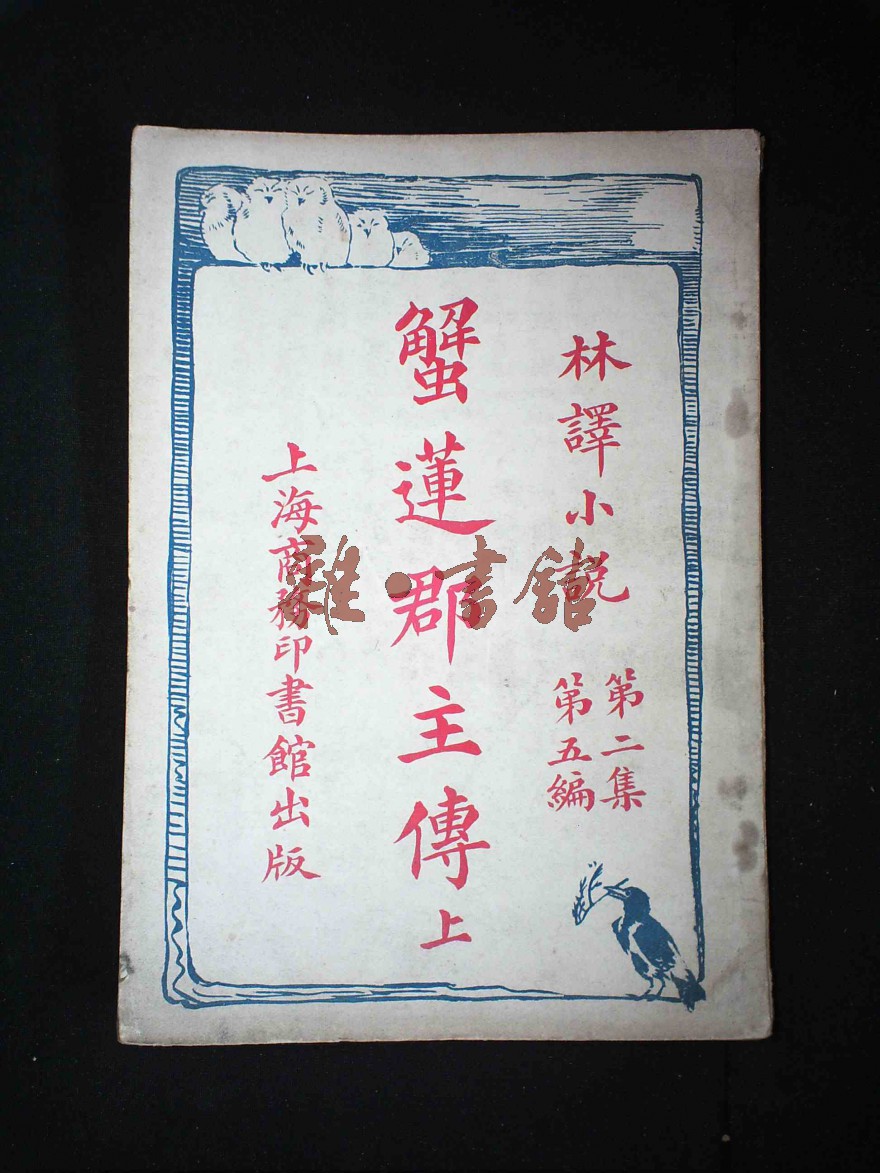 林譯小說
第二集
第五編
蟹蓮郡主傳上
上海商務印書館出版
雜·書館